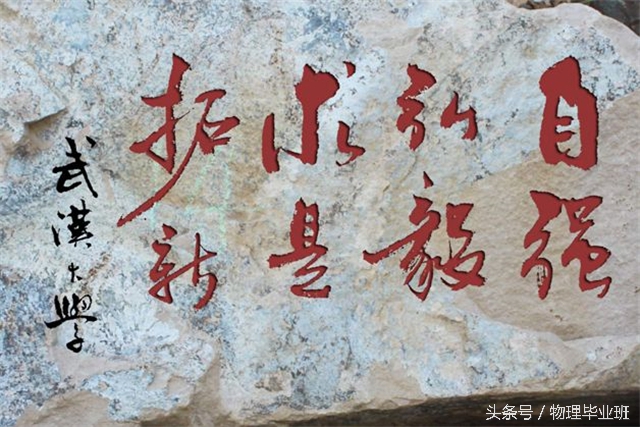 自强
弘毅
求是
拓新
武漢大學
头条号 / 物理毕业班